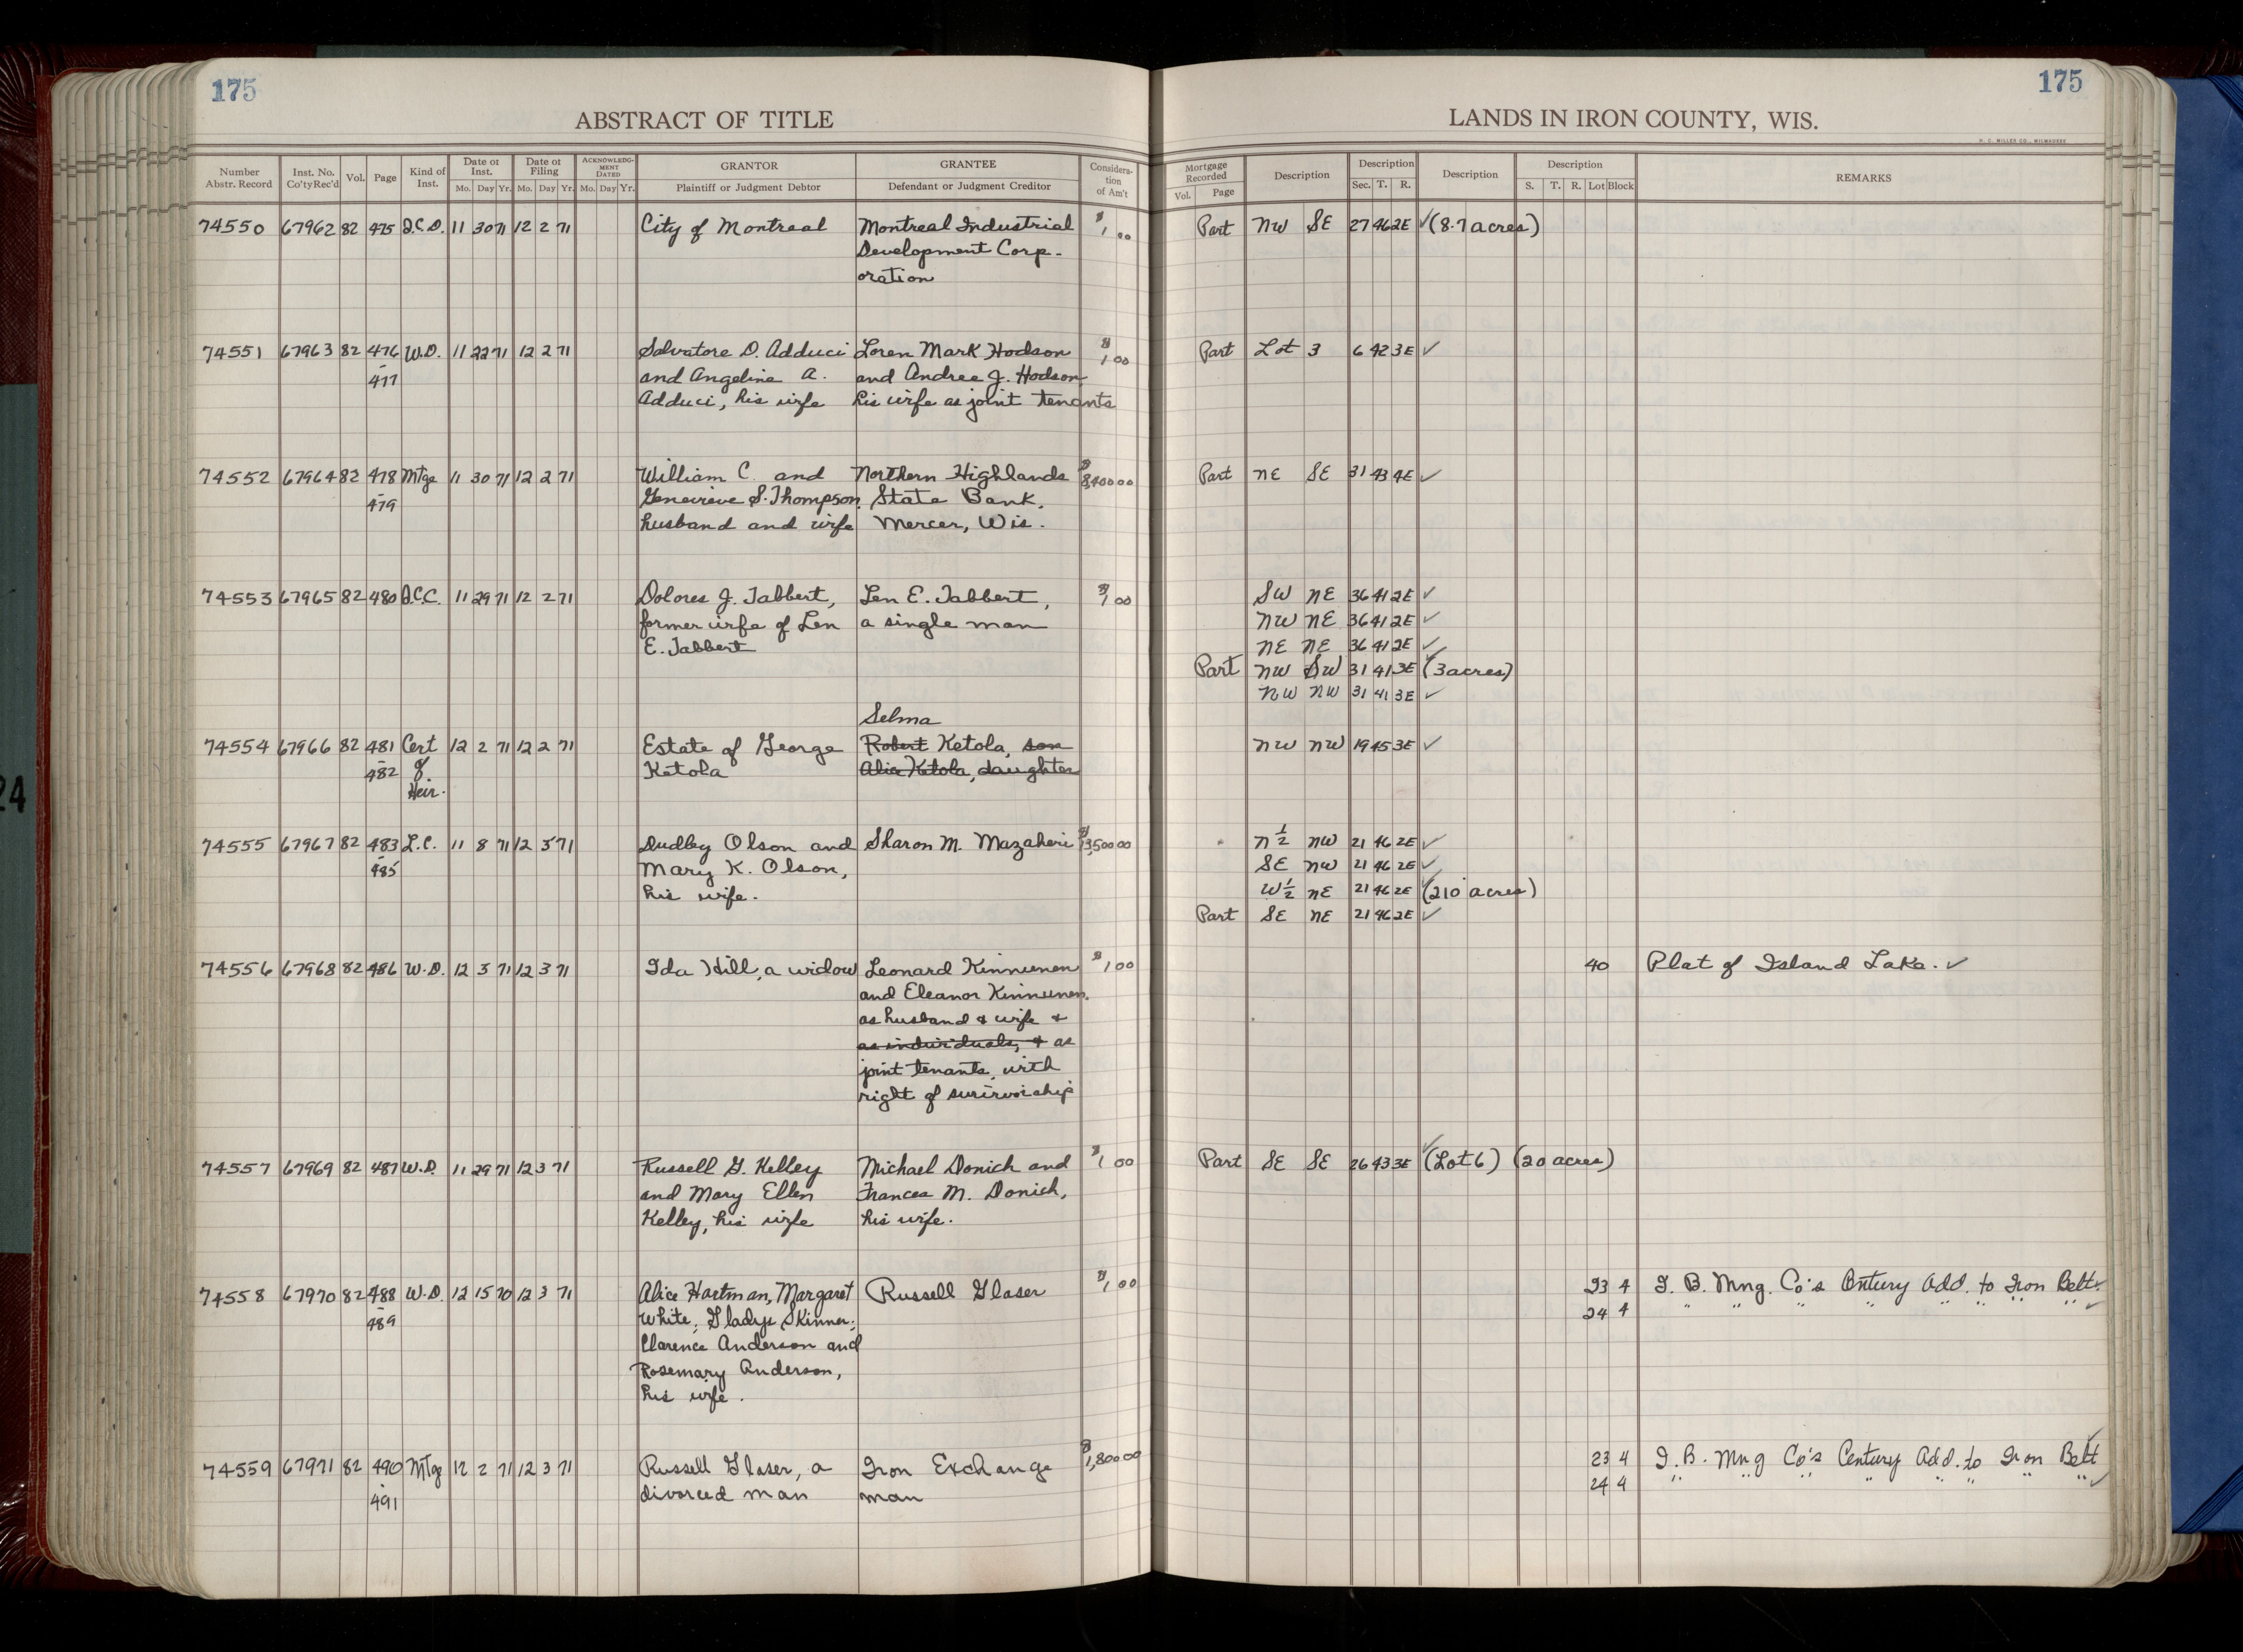 175
175
ABSTRACT OF TITLE
LANDS IN IRON COUNTY, WIS.
H. C. MILLER CO., MILWAUKEE
Number Abstr. Record Inst. No. Co'ty Rec'd Vol. Page Kind of Inst. Date of Inst. Mo. Day Yr. Date of Filing Mo. Day Yr. ACKNOWLEDGMENT DATED Mo. Day Yr. GRANTOR Plaintiff or Judgment Debtor GRANTEE Defendant or Judgment Creditor Consideration of Am't Mortgage Recorded Vol. Page Description Description Sec. T. R. Description Description S. T. R. Lot Block REMARKS
74550 67962 82 475 Q.C.D. 11 30 71 12 2 71 City of Montreal Montreal Industrial $1 00 Part NW SE 27 46 2E ✓ (8.7 acres)
Development Corp-
oration
74551 67963 82 476 W.D. 11 22 71 12 2 71 Salvatore D. Adduci Loren Mark Hodson $1 00 Part Lot 3 6 42 3E ✓
- 477 and Angeline A. and Andree J. Hodson
Adduci, his wife his wife as joint tenants
74552 67964 82 478 Mtge 11 30 71 12 2 71 William C. and Northern Highlands $8,400 00 Part NE SE 31 43 4E ✓
- 479 Genevieve S. Thompson, State Bank,
husband and wife Mercer, Wis.
74553 67965 82 480 Q.C.C. 11 29 71 12 2 71 Dolores J. Tabbert, Len E. Tabbert, $1 00 SW NE 36 41 2E ✓
former wife of Len a single man NW NE 36 41 2E ✓
E. Tabbert NE NE 36 41 2E ✓
Part NW SW 31 41 3E ✓ (3 acres)
NW NW 31 41 3E ✓
Selma
74554 67966 82 481 Cert 12 2 71 12 2 71 Estate of George Robert Ketola, son NW NW 19 45 3E ✓
- 482 of Ketola Alice Ketola, daughter
Heir.
74555 67967 82 483 L.C. 11 8 71 12 3 71 Dudley Olson and Sharon M. Mazaheri $13,500 00 N½ NW 21 46 2E ✓
- 485 Mary K. Olson, SE NW 21 46 2E ✓
his wife. W½ NE 21 46 2E ✓ (210 acres)
Part SE NE 21 46 2E ✓
74556 67968 82 486 W.D. 12 3 71 12 3 71 Ida Hill, a widow Leonard Kinnunen $1 00 40 Plat of Island Lake. ✓
and Eleanor Kinnunen,
as husband & wife &
as individuals, & as
joint tenants, with
right of survivorship
74557 67969 82 487 W.D. 11 29 71 12 3 71 Russell G. Kelley Michael Donich and $1 00 Part SE SE 26 43 3E ✓ (Lot 6) (20 acres)
and Mary Ellen Frances M. Donich,
Kelley, his wife his wife.
74558 67970 82 488 W.D. 12 15 70 12 3 71 Alice Hartman, Margaret Russell Glaser $1 00 23 4 I. B. Mng. Co's Century Add. to Iron Belt ✓
- 489 White, Gladys Skinner, 24 4 " " " " " " " " ✓
Clarence Anderson and
Rosemary Anderson,
his wife.
74559 67971 82 490 Mtge 12 2 71 12 3 71 Russell Glaser, a Iron Exchange $1,800 00 23 4 I. B. Mng Co's Century Add. to Iron Belt ✓
- 491 divorced man man 24 4 " " " " " " " ✓
24